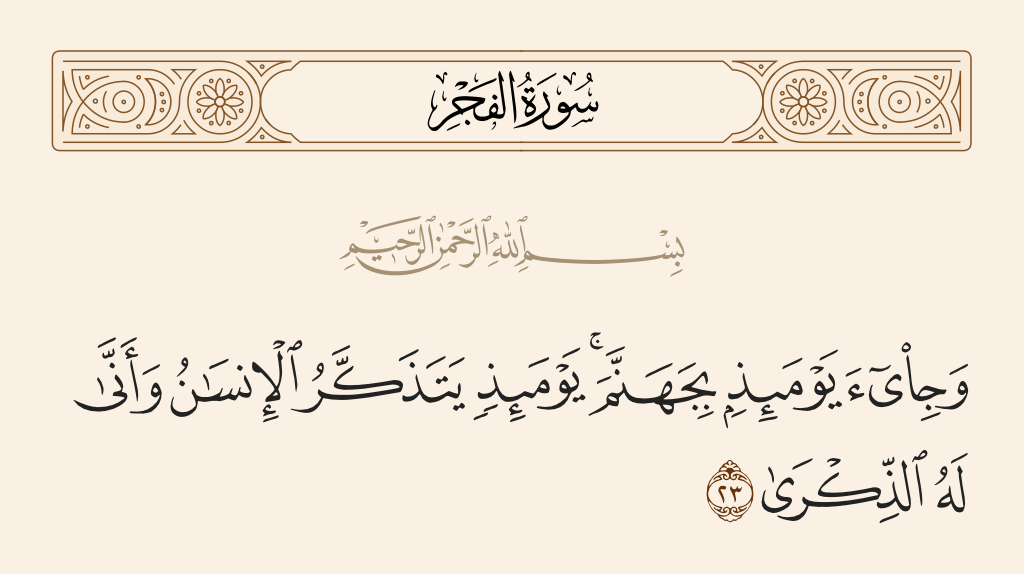 سُورَةُ الفَجْرِ
بِسْمِ ٱللَّهِ ٱلرَّحْمَٰنِ ٱلرَّحِيمِ
وَجِا۟ىٓءَ يَوْمَئِذِۭ بِجَهَنَّمَ ۚ يَوْمَئِذٍ يَتَذَكَّرُ ٱلْإِنسَـٰنُ وَأَنَّىٰ
لَهُ ٱلذِّكْرَىٰ ٢٣